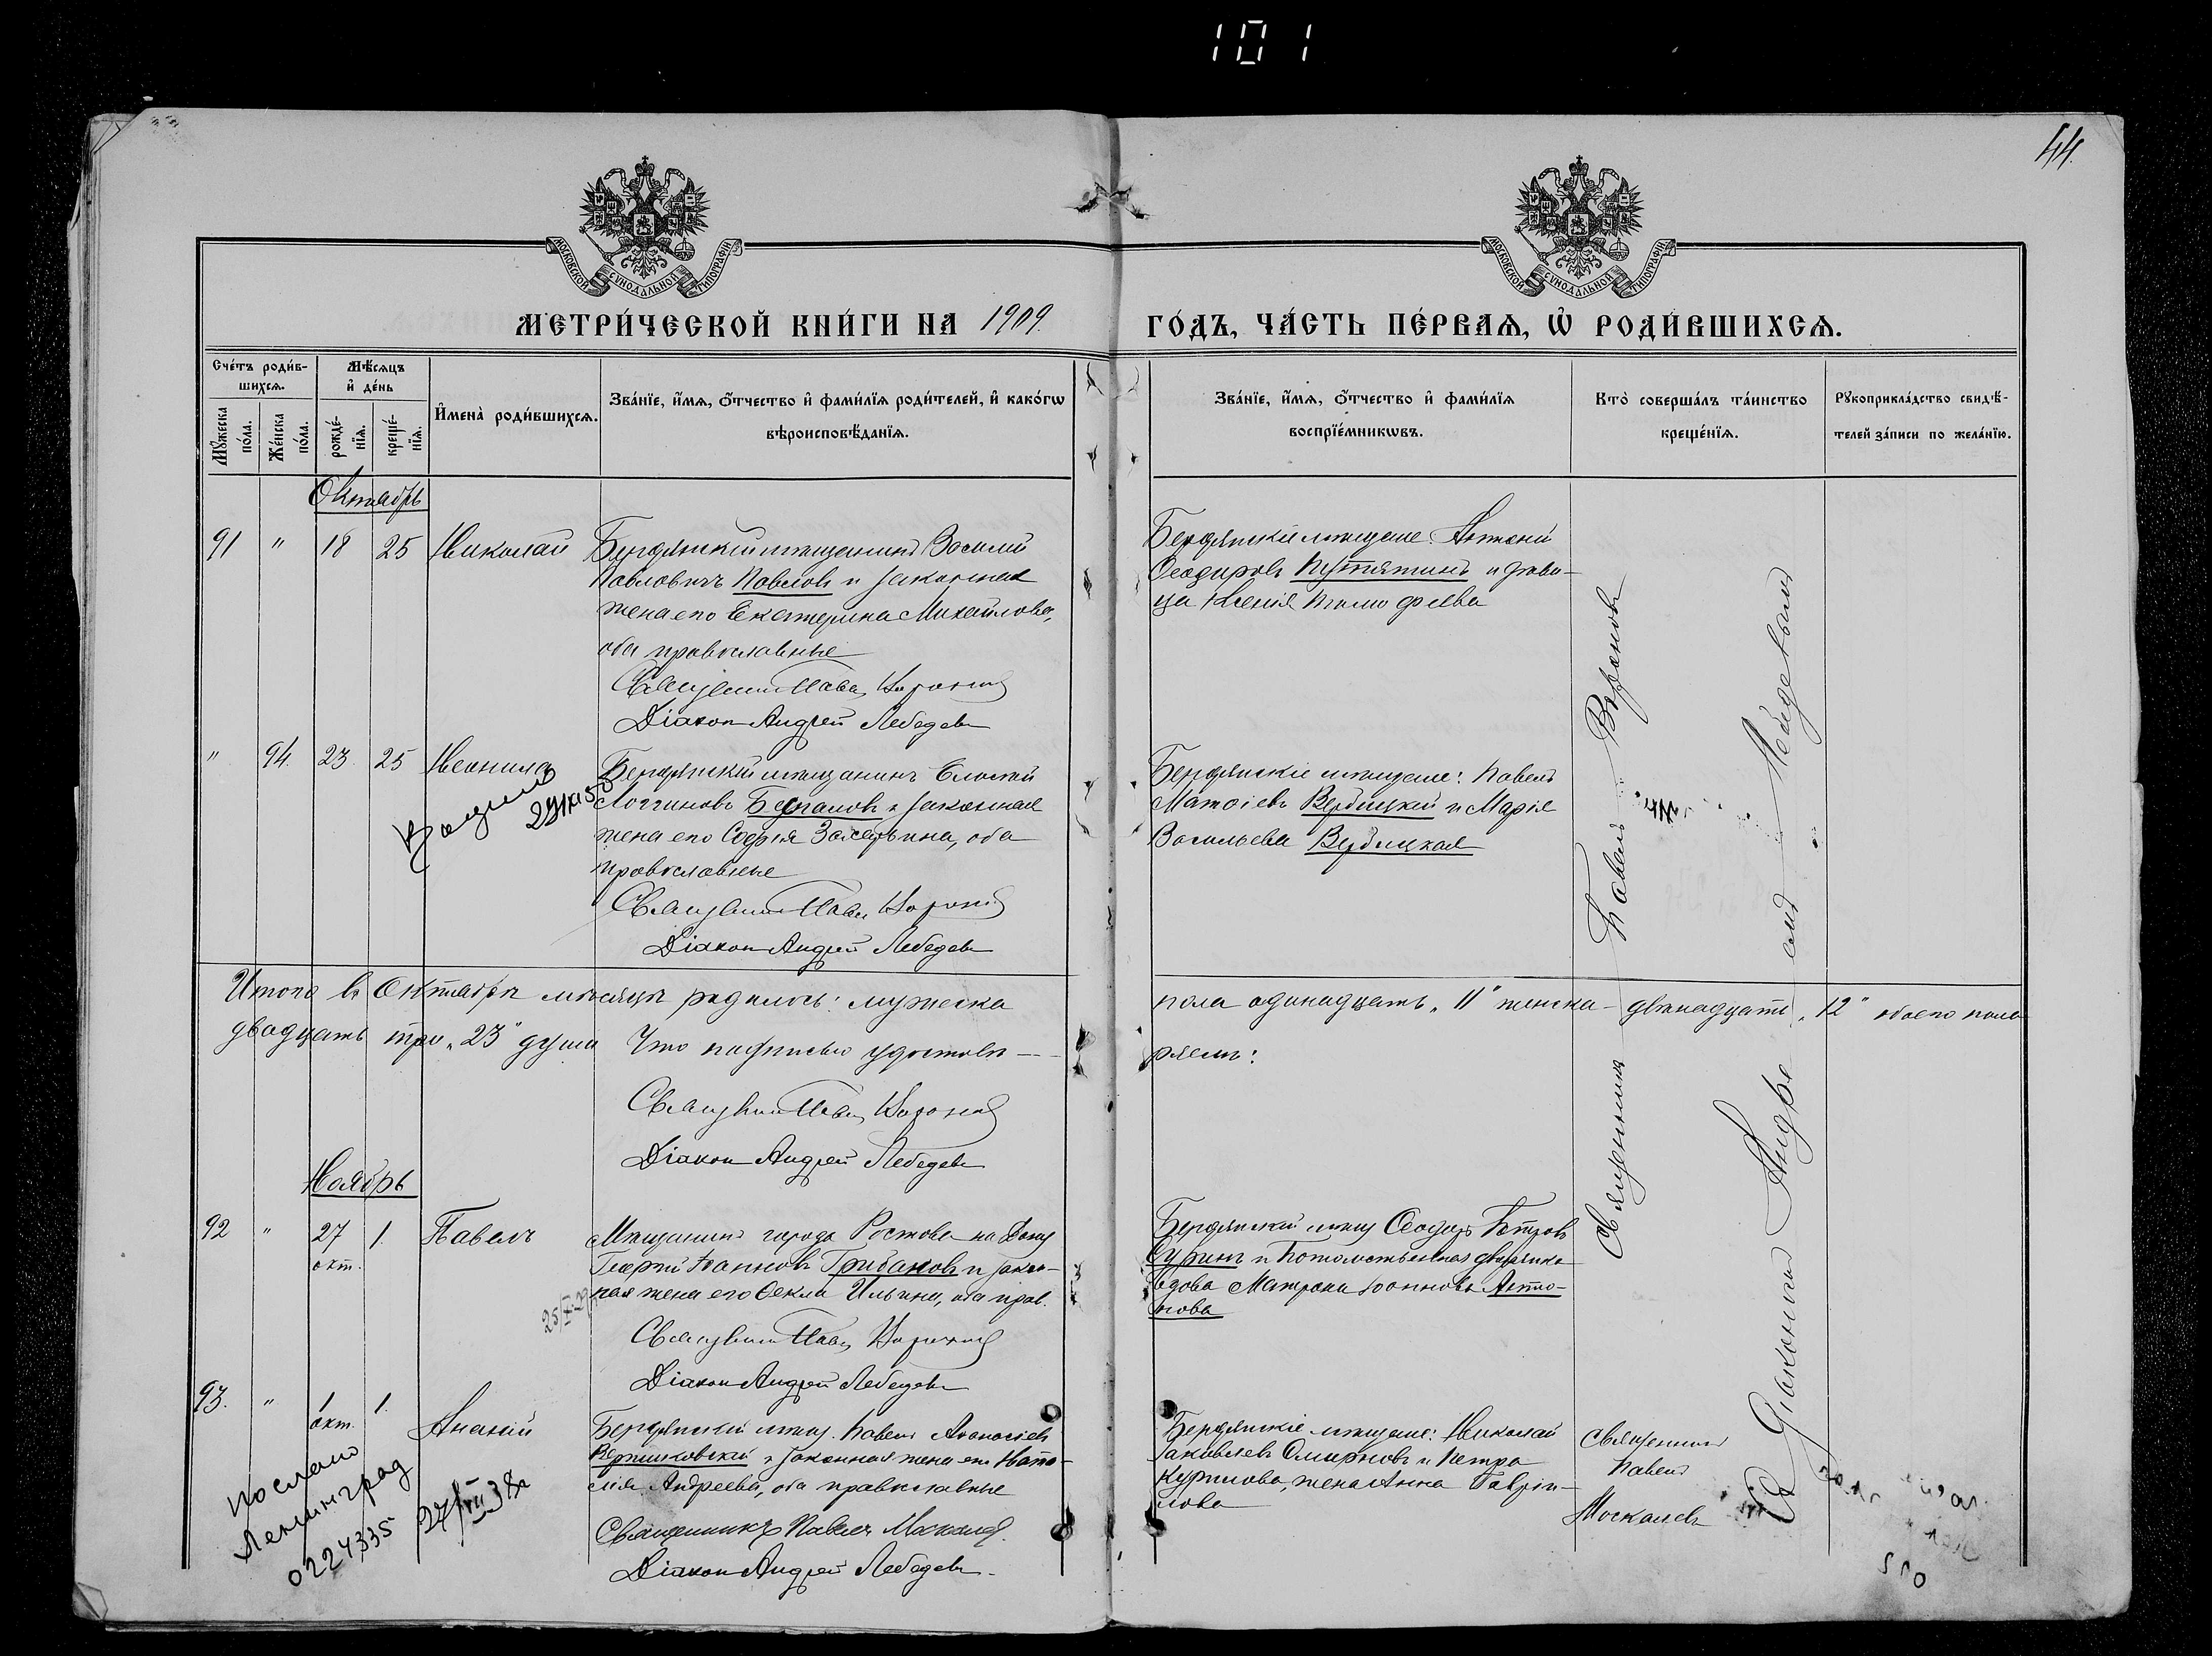 101
44.
МОСКОВСКОЙ СѴНОДАЛЬНОЙ ТИПОГРАФІИ
МОСКОВСКОЙ СѴНОДАЛЬНОЙ ТИПОГРАФІИ
МЕТРИ́ЧЕСКОЙ КНИ́ГИ НА 1909.
ГО́ДЪ, ЧА́СТЬ ПЕ́РВАѦ, Ѡ҆ РОДИ́ВШИХСѦ.
Сче́тъ роди́в-
шихсѧ.
Мꙋ́жеска по́ла.
Же́нска по́ла.
Мѣ́сѧцъ
и҆ де́нь
рожде́-
нїѧ.
креще́-
нїѧ.
И҆мена̀ роди́вшихсѧ.
Зва́нїе, и҆́мѧ, ѻ҆́тчество и҆ фами́лїѧ роди́телей, и҆ како́гѡ
вѣроисповѣ́данїѧ.
Зва́нїе, и҆́мѧ, ѻ҆́тчество и҆ фами́лїѧ
воспрїе́мникѡвъ.
Кто̀ соверша́лъ та́инство
креще́нїѧ.
Рꙋкоприкла́дство свидѣ́-
телей за́писи по жела́нїю.
Октябрь
91 " 18 25 Николай
Бердянскій мѣщанинъ Василій
Павловичъ Павловъ и законная
жена его Екатерина Михайлова,
оба православные
Священникъ Павелъ Воронов
Діаконъ Андрей Лебедевъ
Бердянскіе мѣщане: Антоній
Ѳеодоровъ Путятинъ и дѣви-
ца Ксенія Тимоѳеева
" 94. 23. 25 Неонила
29/XI 55
Бердянскій мѣщанинъ Елисей
Логгиновъ Беспаловъ и законная
жена его Софія, оба
православные
Священникъ Павелъ Воронов
Діаконъ Андрей Лебедевъ
Бердянскіе мѣщане: Павелъ
Матѳіевъ Вербицкій и Марія
Васильева Вербицкая
Итого въ Октябрѣ мѣсяцѣ родилось: мужеска
пола одинадцать „11" женска двѣнадцать „12" обоего пола
двадцать три „23" души Что подписью удостовѣ-
ряемъ:
Священникъ Павелъ Воронов
Діаконъ Андрей Лебедевъ
Священникъ Павелъ Вороновъ
съ діакономъ Андреемъ Лебедевымъ
Ноябрь
92 " 27 окт. 1. Павелъ
Мѣщанинъ города Ростова на Дону
Георгій Іоанновъ Грибановъ и закон-
ная жена его Ѳекла Ильина, оба прав.
Священникъ Павелъ Воронов
Діаконъ Андрей Лебедевъ
Бердянскій мѣщ. Ѳеодоръ Петровъ
Суринъ и потомственная дворянка
вдова Матрона Іоаннова Анто-
нова
93. " 1 окт. 1. Ананій
Бердянскій мѣщ. Павелъ Аѳанасіевъ
Вершковскій и законная жена его Ната-
лія Андреева, оба православные
Священникъ Павелъ Москалев.
Діаконъ Андрей Лебедевъ
Бердянскіе мѣщане: Николай
Іаковлевъ Смирновъ и Петра
Курилова, жена Анна Гаврии-
лова
Священникъ
Павелъ
Москалевъ
послано
Ленинград
0224335 27/VII 38г